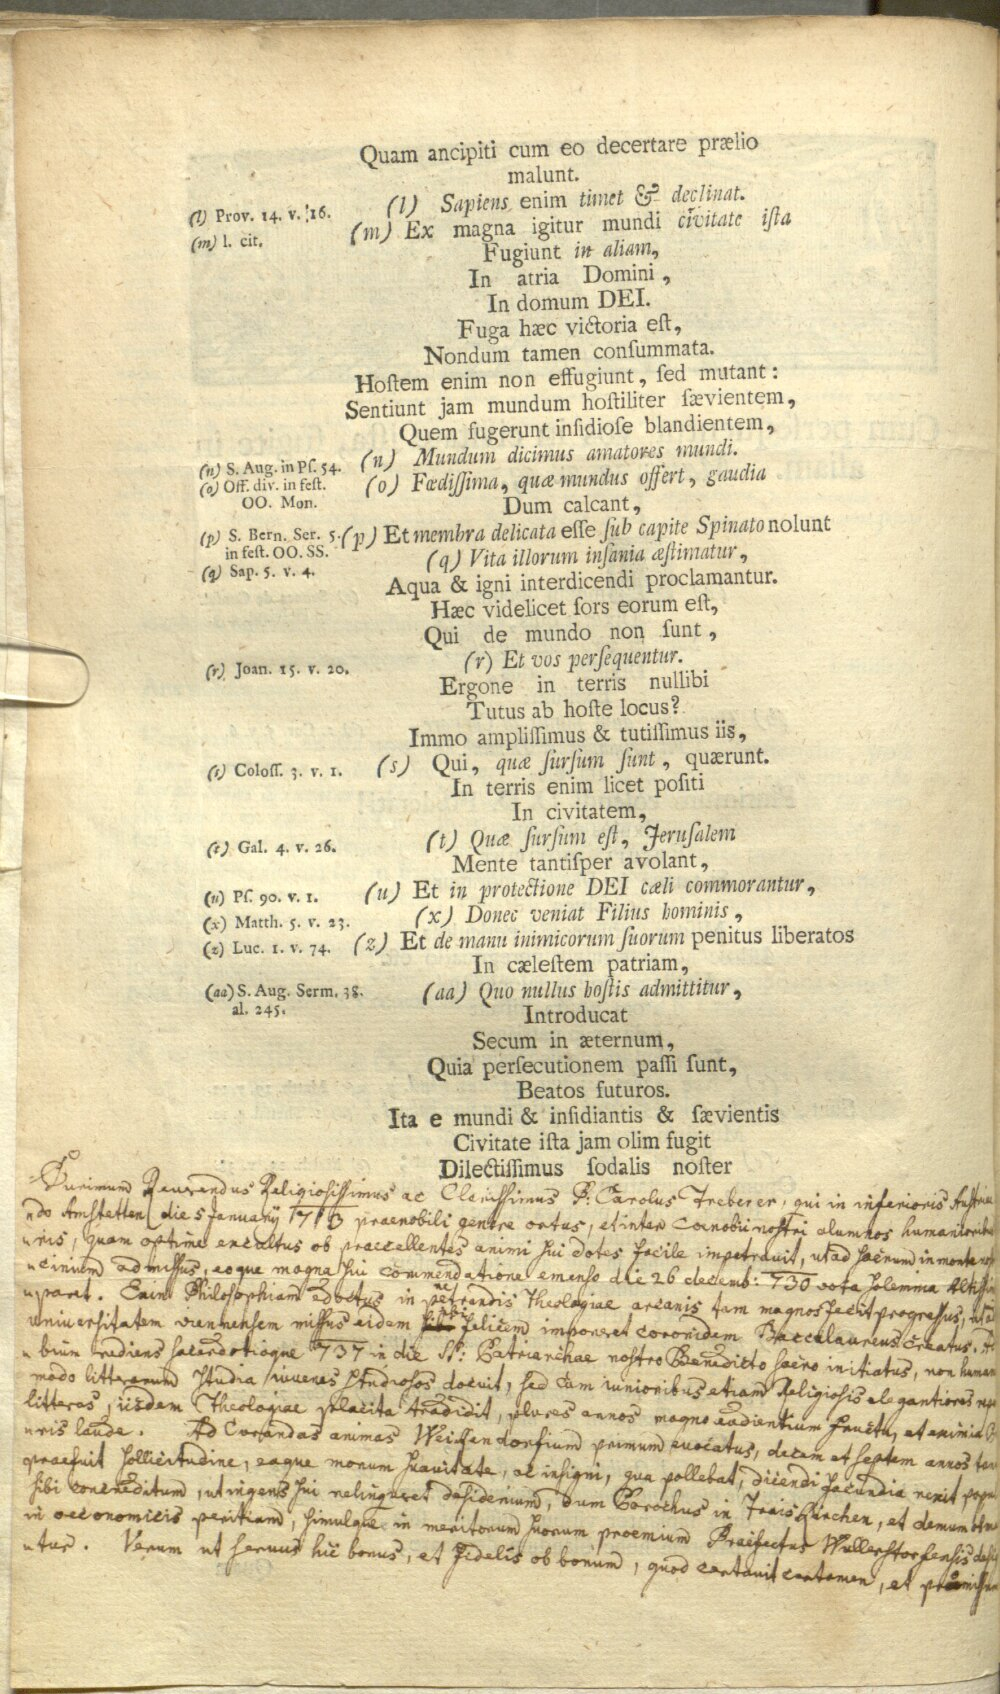 Quam ancipiti cum eo decertare prælio
malunt.
(l) Prov. 14. v. 16. (l) Sapiens enim timet & declinat.
(m) l. cit. (m) Ex magna igitur mundi civitate iſta
Fugiunt in aliam,
In atria Domini,
In domum DEI.
Fuga hæc victoria eſt,
Nondum tamen conſummata.
Hoſtem enim non effugiunt, ſed mutant:
Sentiunt jam mundum hoſtiliter ſævientem,
Quem fugerunt inſidioſe blandientem,
(n) S. Aug. in Pſ. 54. (n) Mundum dicimus amatores mundi.
(o) Off. div. in feſt. (o) Fœdiſſima, quæ mundus offert, gaudia
OO. Mon. Dum calcant,
(p) S. Bern. Ser. 5. (p) Et membra delicata eſſe ſub capite Spinato nolunt
in feſt. OO. SS. (q) Vita illorum inſania æſtimatur,
(q) Sap. 5. v. 4. Aqua & igni interdicendi proclamantur.
Hæc videlicet ſors eorum eſt,
Qui de mundo non ſunt,
(r) Joan. 15. v. 20. (r) Et vos perſequentur.
Ergone in terris nullibi
Tutus ab hoſte locus?
Immo ampliſſimus & tutiſſimus iis,
(s) Coloſſ. 3. v. 1. (s) Qui, quæ ſurſum ſunt, quærunt.
In terris enim licet poſiti
In civitatem,
(t) Gal. 4. v. 26. (t) Quæ ſurſum eſt, Jeruſalem
Mente tantiſper avolant,
(u) Pſ. 90. v. 1. (u) Et in protectione DEI cæli commorantur,
(x) Matth. 5. v. 23. (x) Donec veniat Filius hominis,
(z) Luc. 1. v. 74. (z) Et de manu inimicorum ſuorum penitus liberatos
In cæleſtem patriam,
(aa) S. Aug. Serm. 38. (aa) Quo nullus hoſtis admittitur,
al. 245. Introducat
Secum in æternum,
Quia perſecutionem paſſi ſunt,
Beatos futuros.
Ita e mundi & inſidiantis & ſævientis
Civitate iſta jam olim fugit
Dilectiſſimus ſodalis noſter
Reverendus Religiosissimus ac Clarissimus P: Carolus Treberer, qui in inferioris Austriae
Amstetten die 5 January 1713 praenobili genere ortus, et inter Coenobii nostri alumnos
quam optime excultus ob praecellentes animi sui dotes facile impetravit, ut ad sacrum in monte
admissus, eoque magna sui commendatione emenso die 26 decemb: 730 vota solemnia
Philosophiam edoctus in penetrandis Theologiae arcanis tam magnos fecit progressus, ut ad
universitatem viennensem missus eidem felicem imponeret coronidem Baccalaureus creatus.
radiens sacerdotioque 737 in die SS: Patriarchae nostro Benedicto sacro initiatus, non
modo litterarum studia iuvenes studiosos docuit, sed cum iunioribus etiam Religiosis elegantiores
litteras, iisdem Theologiae placita tradidit, plures annos magno audientium fructu, et eximia
laude. Ad Curandas animas Weissendorfium primum evocatus, decem et septem annos
praefuit sollicitudine, eaque morum suavitate, ac insigni, qua pollebat, dicendi facundia rexit
sibi concreditum, ut ingens sui relinqueret desiderium, dum Parochus in Trais Kirchen, et demum
in oeconomicis peritiam, simulque in meritorum suorum praemium Praefectus Wullerstorfensis
Verum ut servus hic bonus, et fidelis ob bonum, quod certavit certamen, et